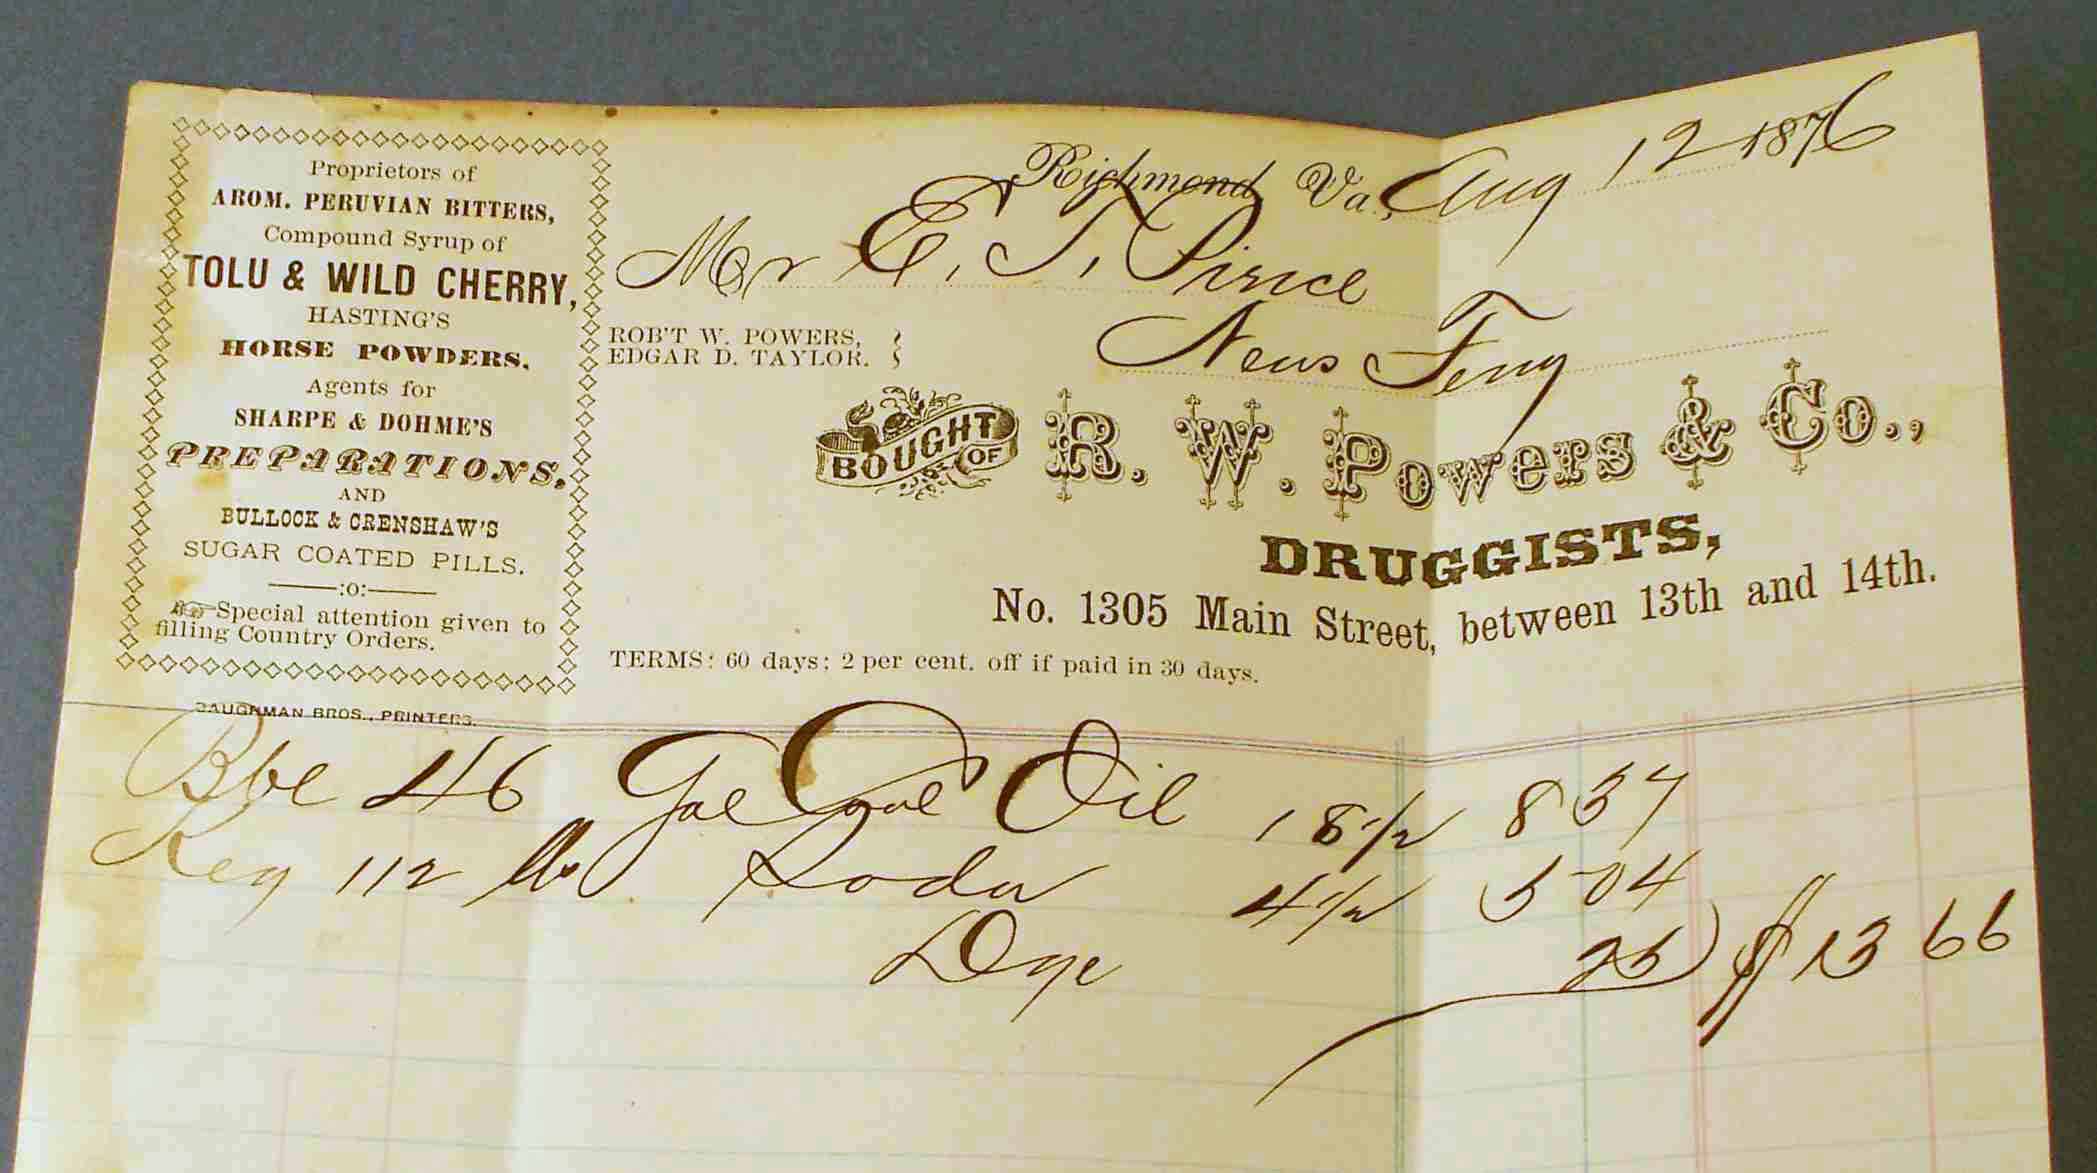 Proprietors of
AROM. PERUVIAN BITTERS,
Compound Syrup of
TOLU & WILD CHERRY,
HASTING'S
HORSE POWDERS.
Agents for
SHARPE & DOHME'S
PREPARATIONS,
AND
BULLOCK & CRENSHAW'S
SUGAR COATED PILLS.
:o:
Special attention given to
filling Country Orders.
BAUGHMAN BROS., PRINTERS.
Richmond, Va., Aug 12 1876
Mr E. T. Pirice
News Fery
ROB'T W. POWERS,
EDGAR D. TAYLOR.
BOUGHT OF R. W. Powers & Co.,
DRUGGISTS,
No. 1305 Main Street, between 13th and 14th.
TERMS: 60 days; 2 per cent. off if paid in 30 days.
Bbl 46 Gal Oil 18 1/2 8 37
Keg 112 lbs Soda 4 1/2 5 04
Dge 25 $13 66